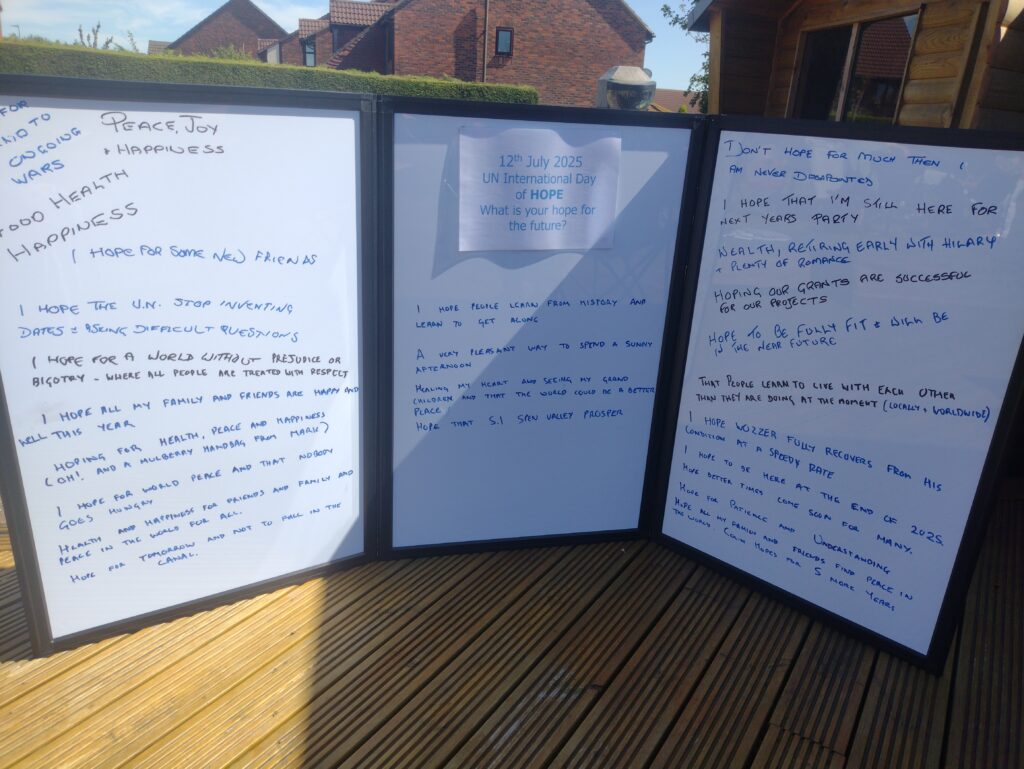 FOR
AID TO
ONGOING
WARS
PEACE, JOY
+ HAPPINESS
GOOD HEALTH
HAPPINESS
I HOPE FOR SOME NEW FRIENDS
I HOPE THE U.N. STOP INVENTING
DATES & ASKING DIFFICULT QUESTIONS
I HOPE FOR A WORLD WITHOUT PREJUDICE OR
BIGOTRY - WHERE ALL PEOPLE ARE TREATED WITH RESPECT
I HOPE ALL MY FAMILY AND FRIENDS ARE HAPPY AND
WELL THIS YEAR
HOPING FOR HEALTH, PEACE AND HAPPINESS
(OH! AND A MULBERRY HANDBAG FROM MARK)
I HOPE FOR WORLD PEACE AND THAT NOBODY
GOES HUNGRY
HEALTH AND HAPPINESS FOR FRIENDS AND FAMILY AND
PEACE IN THE WORLD FOR ALL.
HOPE FOR TOMORROW AND NOT TO FALL IN THE
CANAL.
12th July 2025
UN International Day
of HOPE
What is your hope for
the future?
I HOPE PEOPLE LEARN FROM HISTORY AND
LEARN TO GET ALONG
A VERY PLEASANT WAY TO SPEND A SUNNY
AFTERNOON
HEALING MY HEART AND SEEING MY GRAND
CHILDREN AND THAT THE WORLD COULD BE A BETTER
PLACE
HOPE THAT S.I SPEN VALLEY PROSPER
I DON'T HOPE FOR MUCH THEN I
AM NEVER DISAPPOINTED
I HOPE THAT I'M STILL HERE FOR
NEXT YEARS PARTY
WEALTH, RETIRING EARLY WITH HILARY
+ PLENTY OF ROMANCE
HOPING OUR GRANTS ARE SUCCESSFUL
FOR OUR PROJECTS
HOPE TO BE FULLY FIT & WILL BE
IN THE NEAR FUTURE
THAT PEOPLE LEARN TO LIVE WITH EACH OTHER
THAN THEY ARE DOING AT THE MOMENT (LOCALLY + WORLDWIDE)
I HOPE WOZZER FULLY RECOVERS FROM HIS
CONDITION AT A SPEEDY RATE
I HOPE TO BE HERE AT THE END OF 2025
HOPE BETTER TIMES COME SOON FOR MANY.
HOPE FOR PATIENCE AND UNDERSTANDING
HOPE ALL MY FAMILY AND FRIENDS FIND PEACE IN
THE WORLD. HOPES FOR 5 MORE YEARS